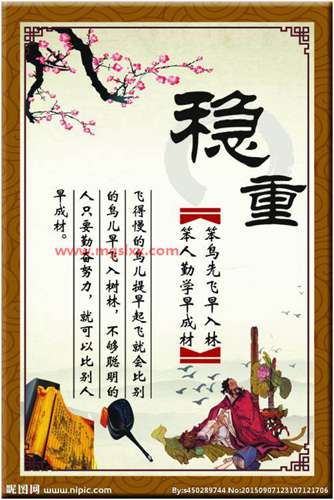 稳重
【笨鸟先飞早入林
笨人勤学早成材】
飞得慢的鸟儿提早起飞就会比别
的鸟儿早飞入树林，不够聪明的
人只要勤奋努力，就可以比别人
早成材。
昵图网 www.nipic.com
By:s450289744 No:20150907123107121706